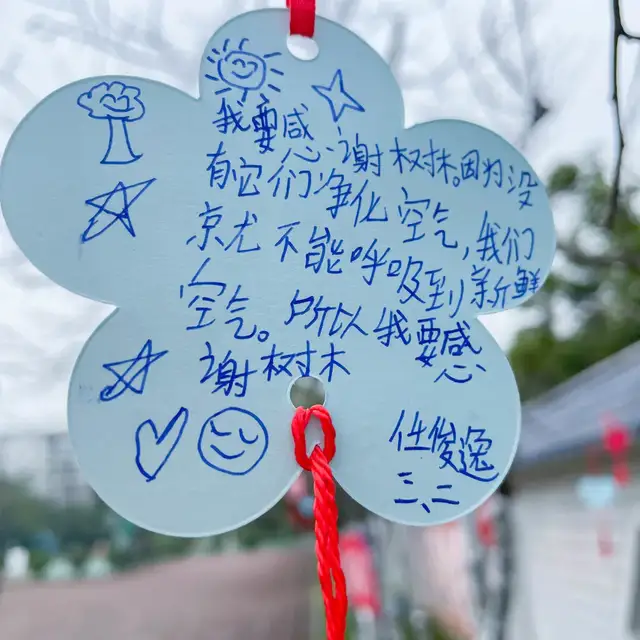 我要感
谢树林。因为没
有它们净化空气,我们
京尤不能呼吸到新鲜
空气。所以我要感
谢树木
任俊逸
三、二